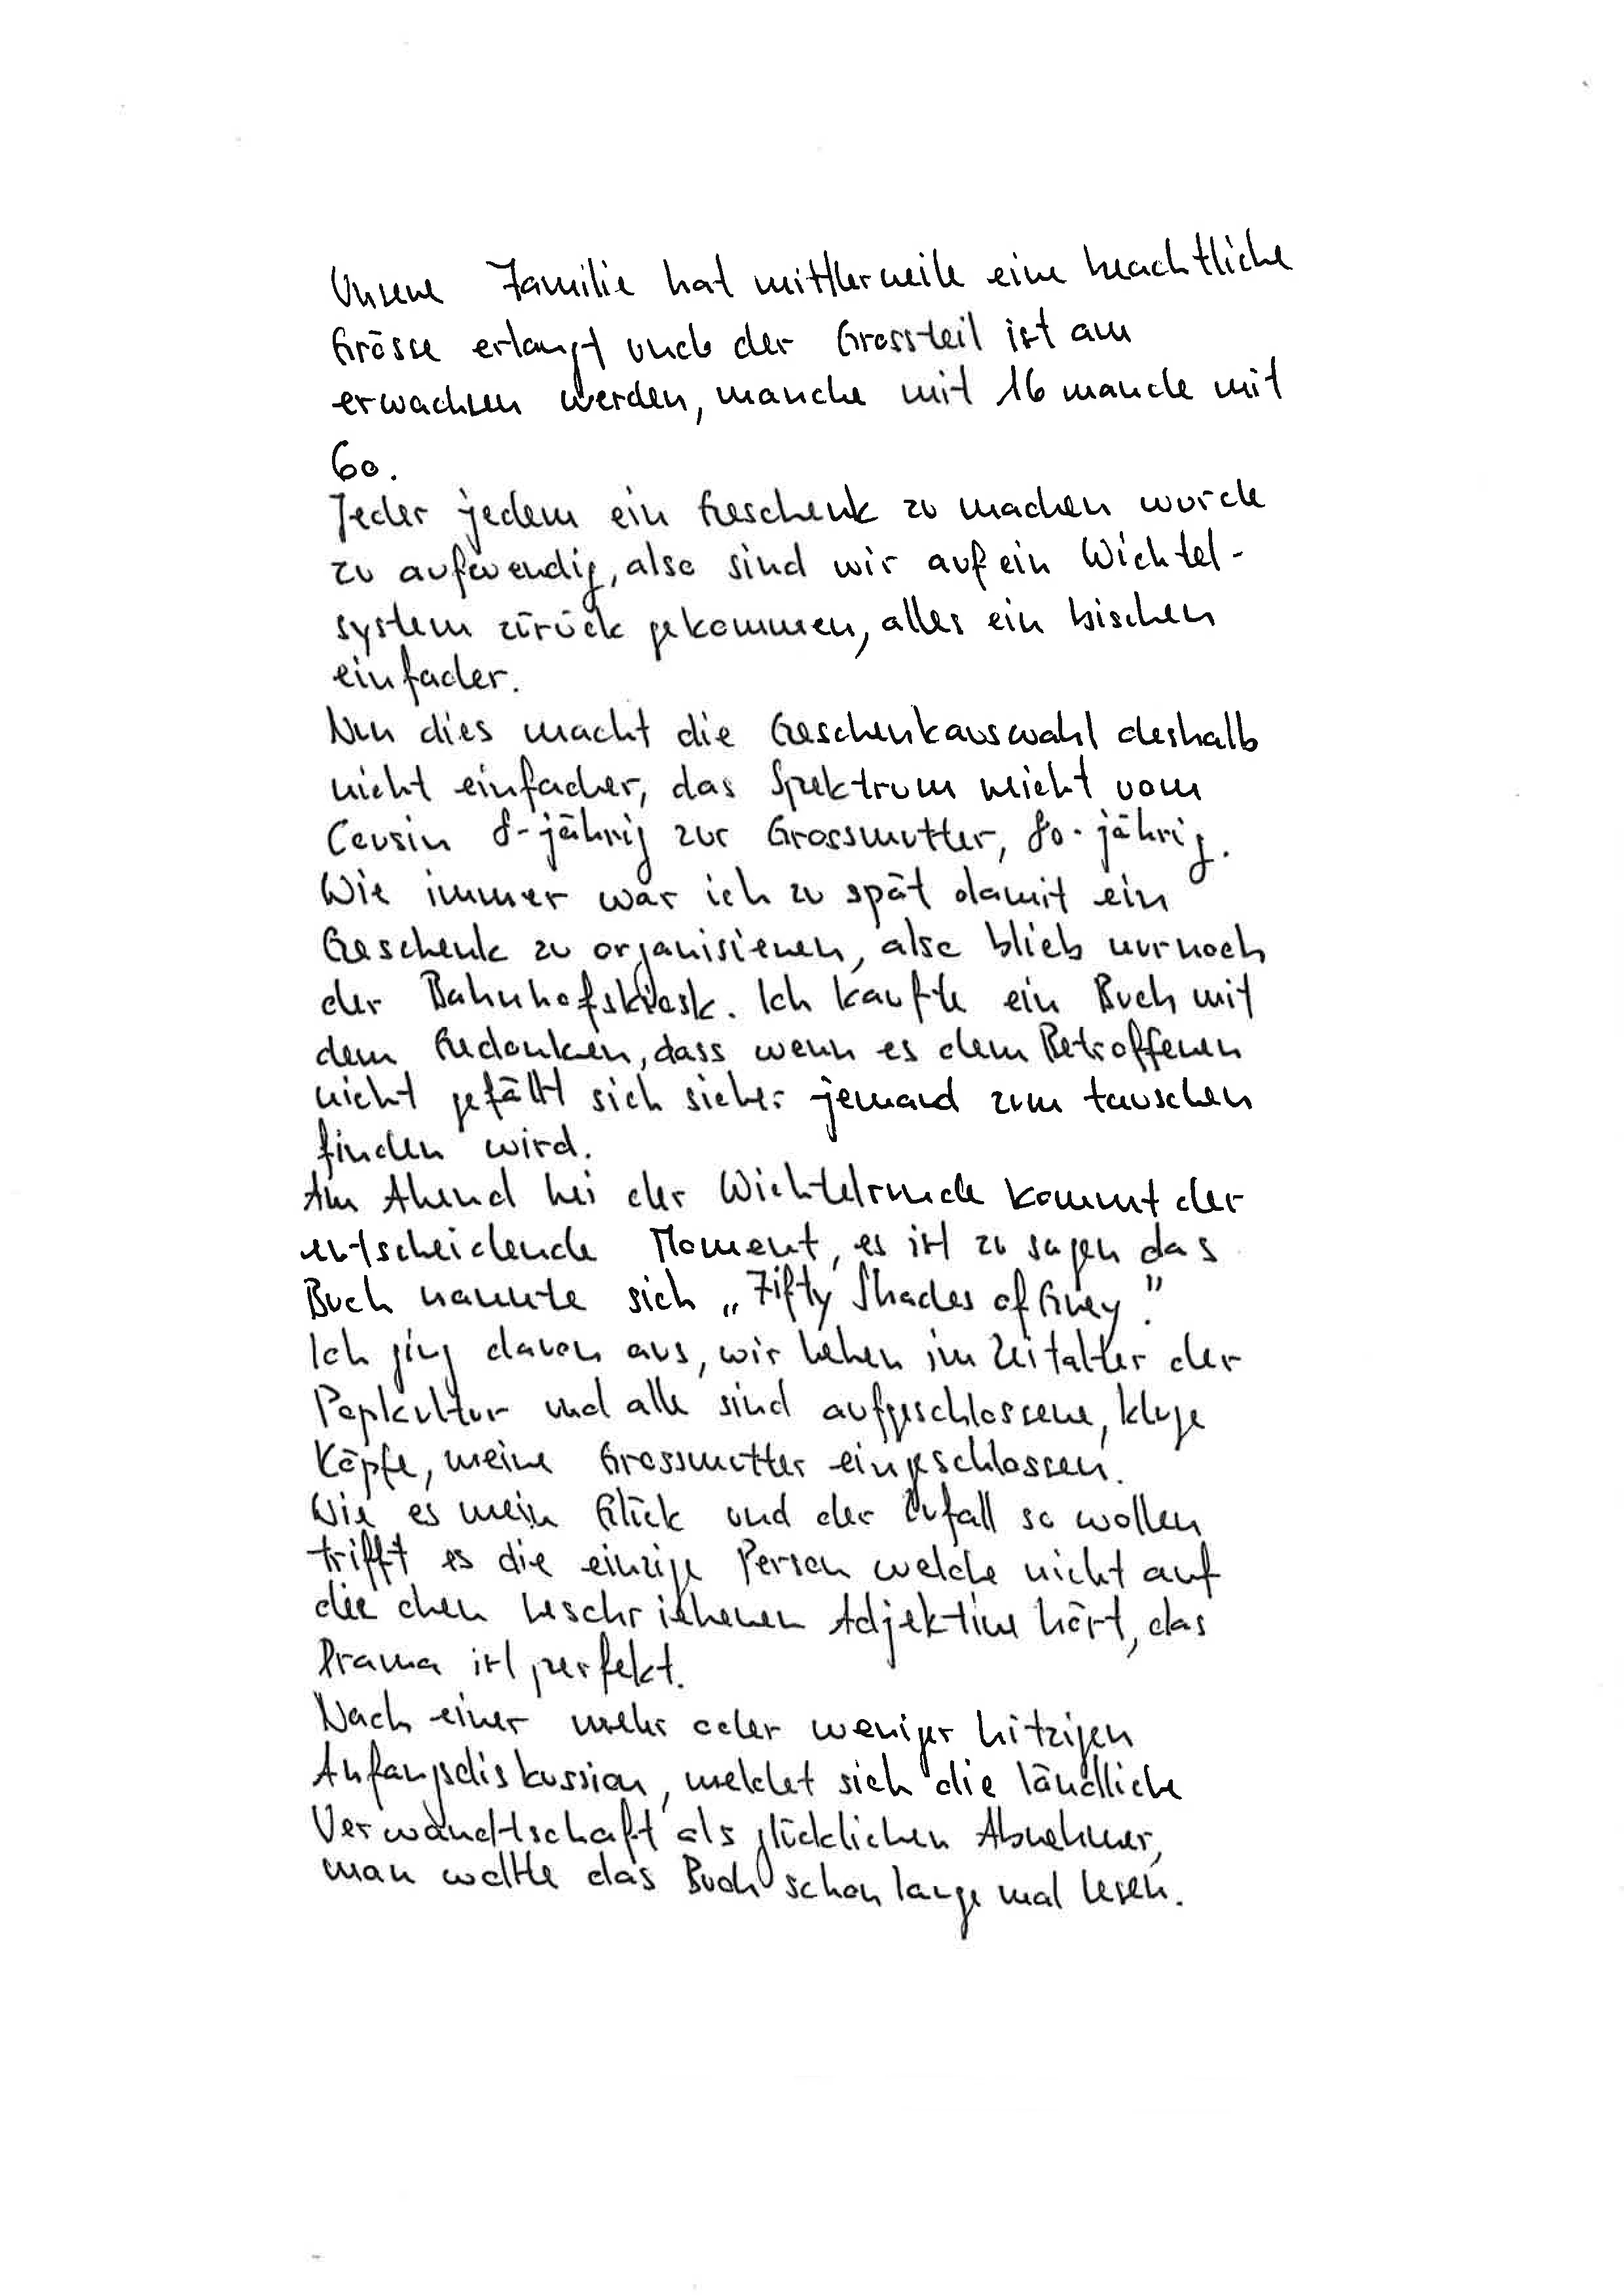 Unsere Familie hat mittlerweile eine beachtliche
Grösse erlangt und der Grossteil ist am
erwachsen werden, manche mit 16 manche mit
60.
Jeder jedem ein Geschenk zu machen wurde
zu aufwendig, also sind wir auf ein Wichtel-
system zurück gekommen, alles ein bischen
einfacher.
Nun dies macht die Geschenkauswahl deshalb
nicht einfacher, das Spektrum reicht vom
Cousin 8-jährig zur Grossmutter, 80-jährig.
Wie immer war ich zu spät damit ein
Geschenk zu organisieren, also blieb nur noch
der Bahnhofskiosk. Ich kaufte ein Buch mit
dem Gedanken, dass wenn es dem Betroffenen
nicht gefällt sich sicher jemand zum tauschen
finden wird.
Am Abend bei der Wichtelrunde kommt der
entscheidende Moment, es ist zu sagen das
Buch nannte sich „Fifty Shades of Grey."
Ich ging davon aus, wir leben im Zeitalter der
Popkultur und alle sind aufgeschlossene, kluge
Köpfe, meine Grossmutter eingeschlossen.
Wie es mein Glück und der Zufall so wollen
trifft es die einzige Person welche nicht auf
die oben beschriebenen Adjektive hört, das
Drama ist perfekt.
Nach einer mehr oder weniger hitzigen
Anfangsdiskussion, meldet sich die ländliche
Verwandtschaft als glücklichen Abnehmer,
man wollte das Buch schon lange mal lesen.